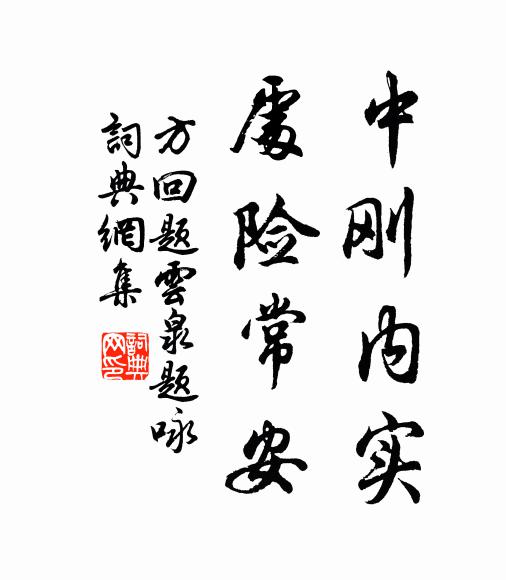 中刚内实
處险常安
方回题雲泉题咏
詞典網集
詞典网印